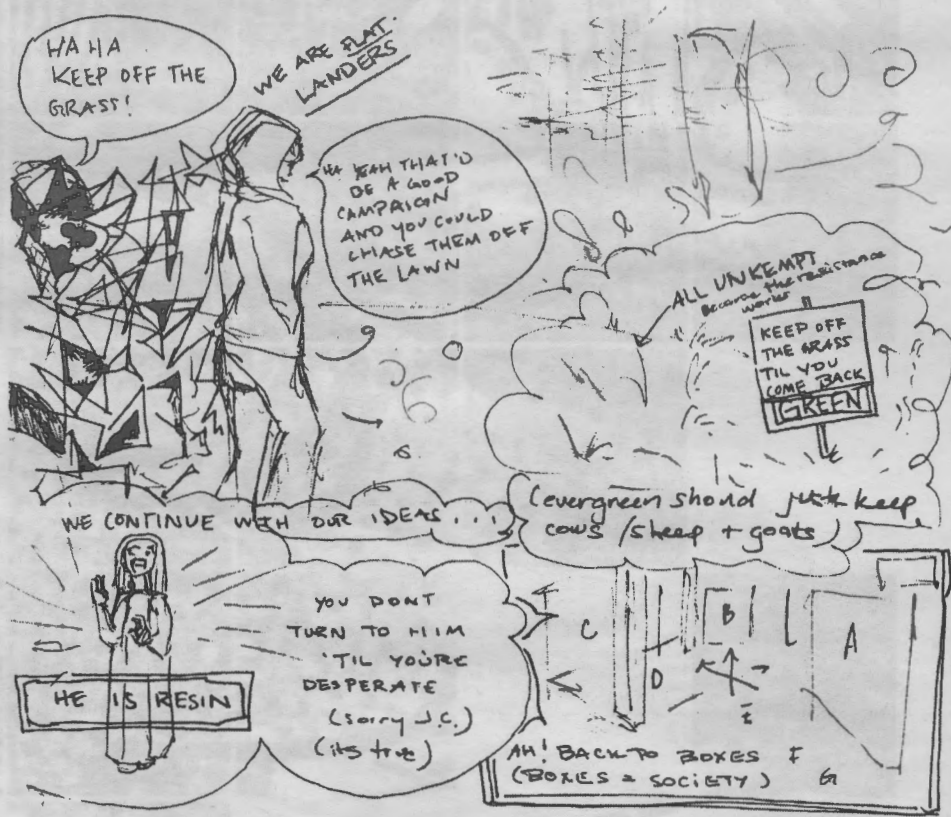 HA HA
KEEP OFF THE
GRASS!
WE ARE FLAT.
LANDERS
HA YEAH THAT'D
BE A GOOD
CAMPAIGN
AND YOU COULD
CHASE THEM OFF
THE LAWN
ALL UNKEMPT
Become the resistance
works
KEEP OFF
THE GRASS
TIL YOU
COME BACK
GREEN
(evergreen should just keep
cows / sheep + goats)
WE CONTINUE WITH OUR IDEAS...
HE IS RESIN
YOU DONT
TURN TO HIM
'TIL YOU'RE
DESPERATE
(sorry J.C.)
(its true)
C
D
B
A
E
F
G
AH! BACK TO BOXES
(BOXES = SOCIETY)